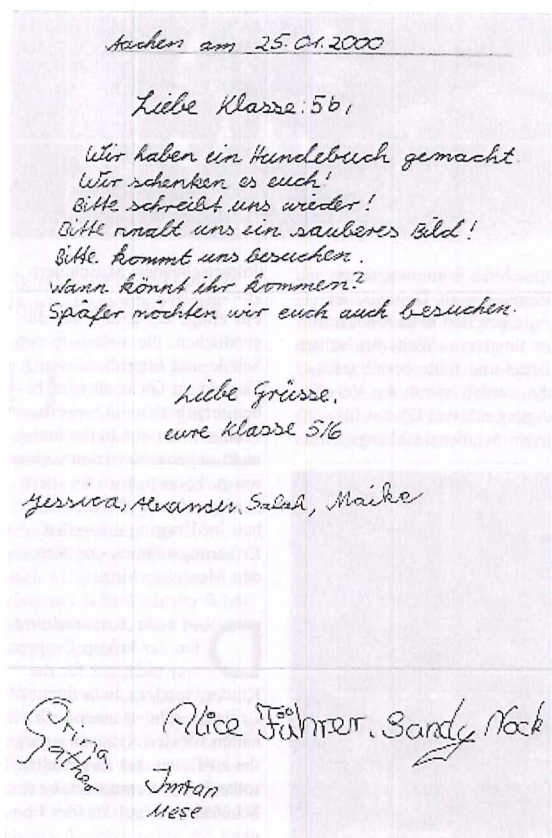 Aachen am 25.01.2000
Liebe Klasse: 5b,
Wir haben ein Hundebuch gemacht.
Wir schenken es euch!
Bitte schreibt uns wieder!
Bitte malt uns ein sauberes Bild!
Bitte kommt uns besuchen.
Wann könnt ihr kommen?
Später möchten wir euch auch besuchen.
Liebe Grüsse,
eure Klasse 5/6
Jessica, Alexander, Salah, Maike
Alice Führer. Sandy Nock
Imran
Mese